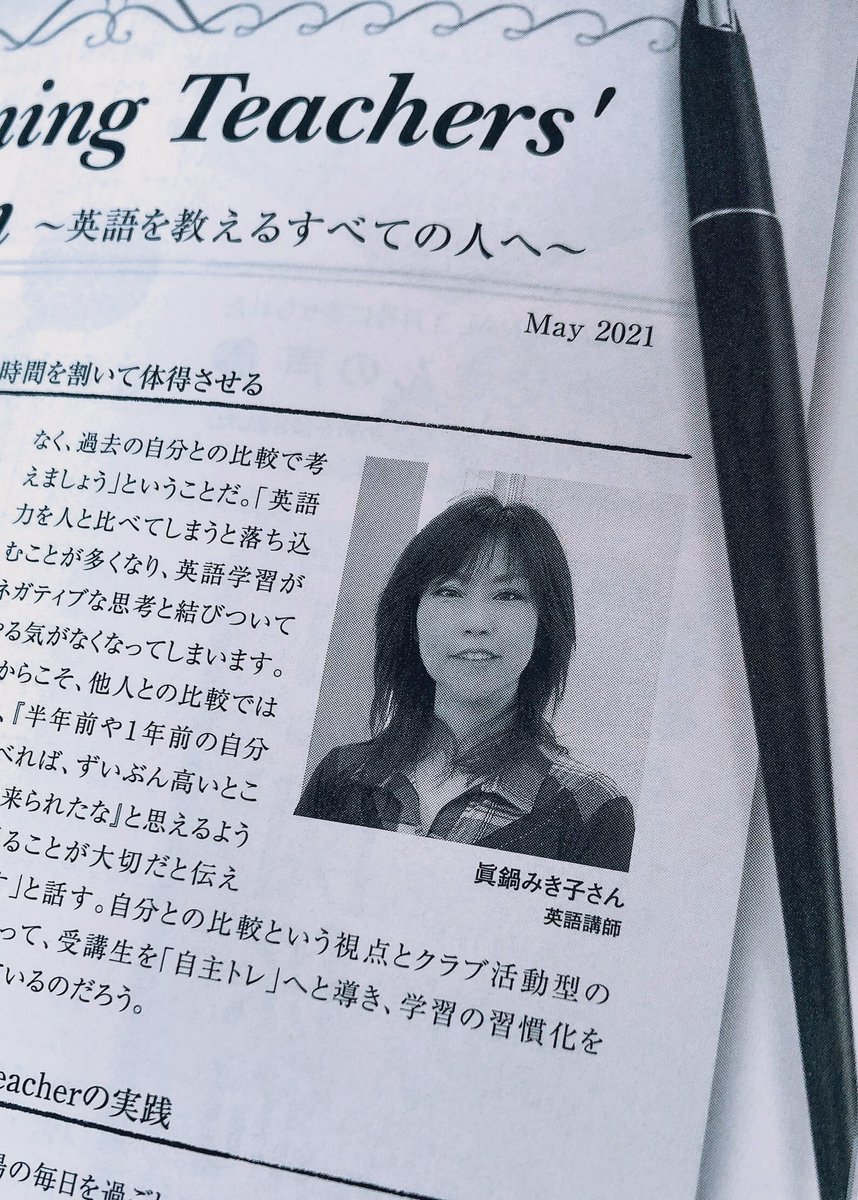 ning Teachers'
～英語を教えるすべての人へ～
May 2021
時間を割いて体得させる
なく、過去の自分との比較で考
えましょう」ということだ。「英語
力を人と比べてしまうと落ち込
むことが多くなり、英語学習が
ネガティブな思考と結びついて
る気がなくなってしまいます。
からこそ、他人との比較では
、『半年前や1年前の自分
べれば、ずいぶん高いとこ
来られたな』と思えるよう
ることが大切だと伝え
」と話す。自分との比較という視点とクラブ活動型の
って、受講生を「自主トレ」へと導き、学習の習慣化を
いるのだろう。
眞鍋みき子さん
英語講師
eacherの実践
の毎日を過ご